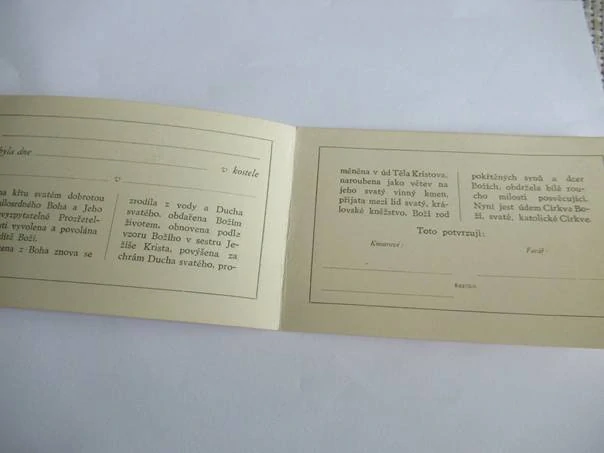 byla dne
v kostele
v
na křtu svatém dobrotou
milosrdného Boha a Jeho
nevyzpytatelné Prozřetel-
vyvolena a povolána
Boží.
z Boha znova se
zrodila z vody a Ducha
svatého, obdařena Božím
životem, obnovena podle
vzoru Božího v sestru Je-
žíše Krista, povýšena za
chrám Ducha svatého, pro-
měněna v úd Těla Kristova,
naroubena jako větev na
jeho svatý vinný kmen,
přijata mezi lid svatý, krá-
lovské kněžstvo, Boží rod
pokřtěných synů a dcer
Božích, obdržela bílé rou-
cho milosti posvěcující.
Nyní jest údem Církve Bo-
ží, svaté, katolické Církve.
Toto potvrzují:
Kmotrové:
Farář: